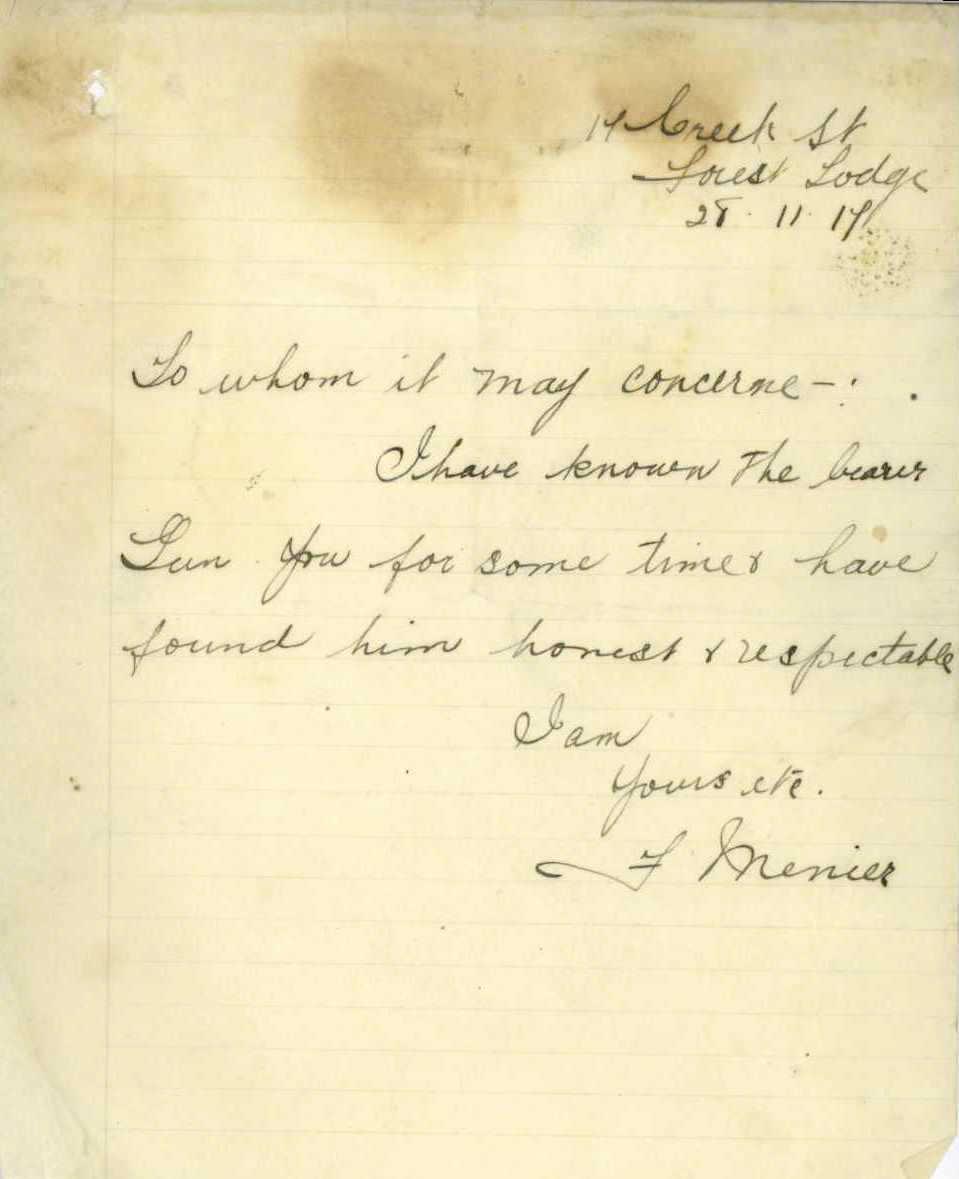 17 Creek St
Forest Lodge
28. 11. 17
To whom it may concerne -:
I have known the bearer
Gun You for some time & have
found him honest & respectable
I am
Yours etc.
F Menier